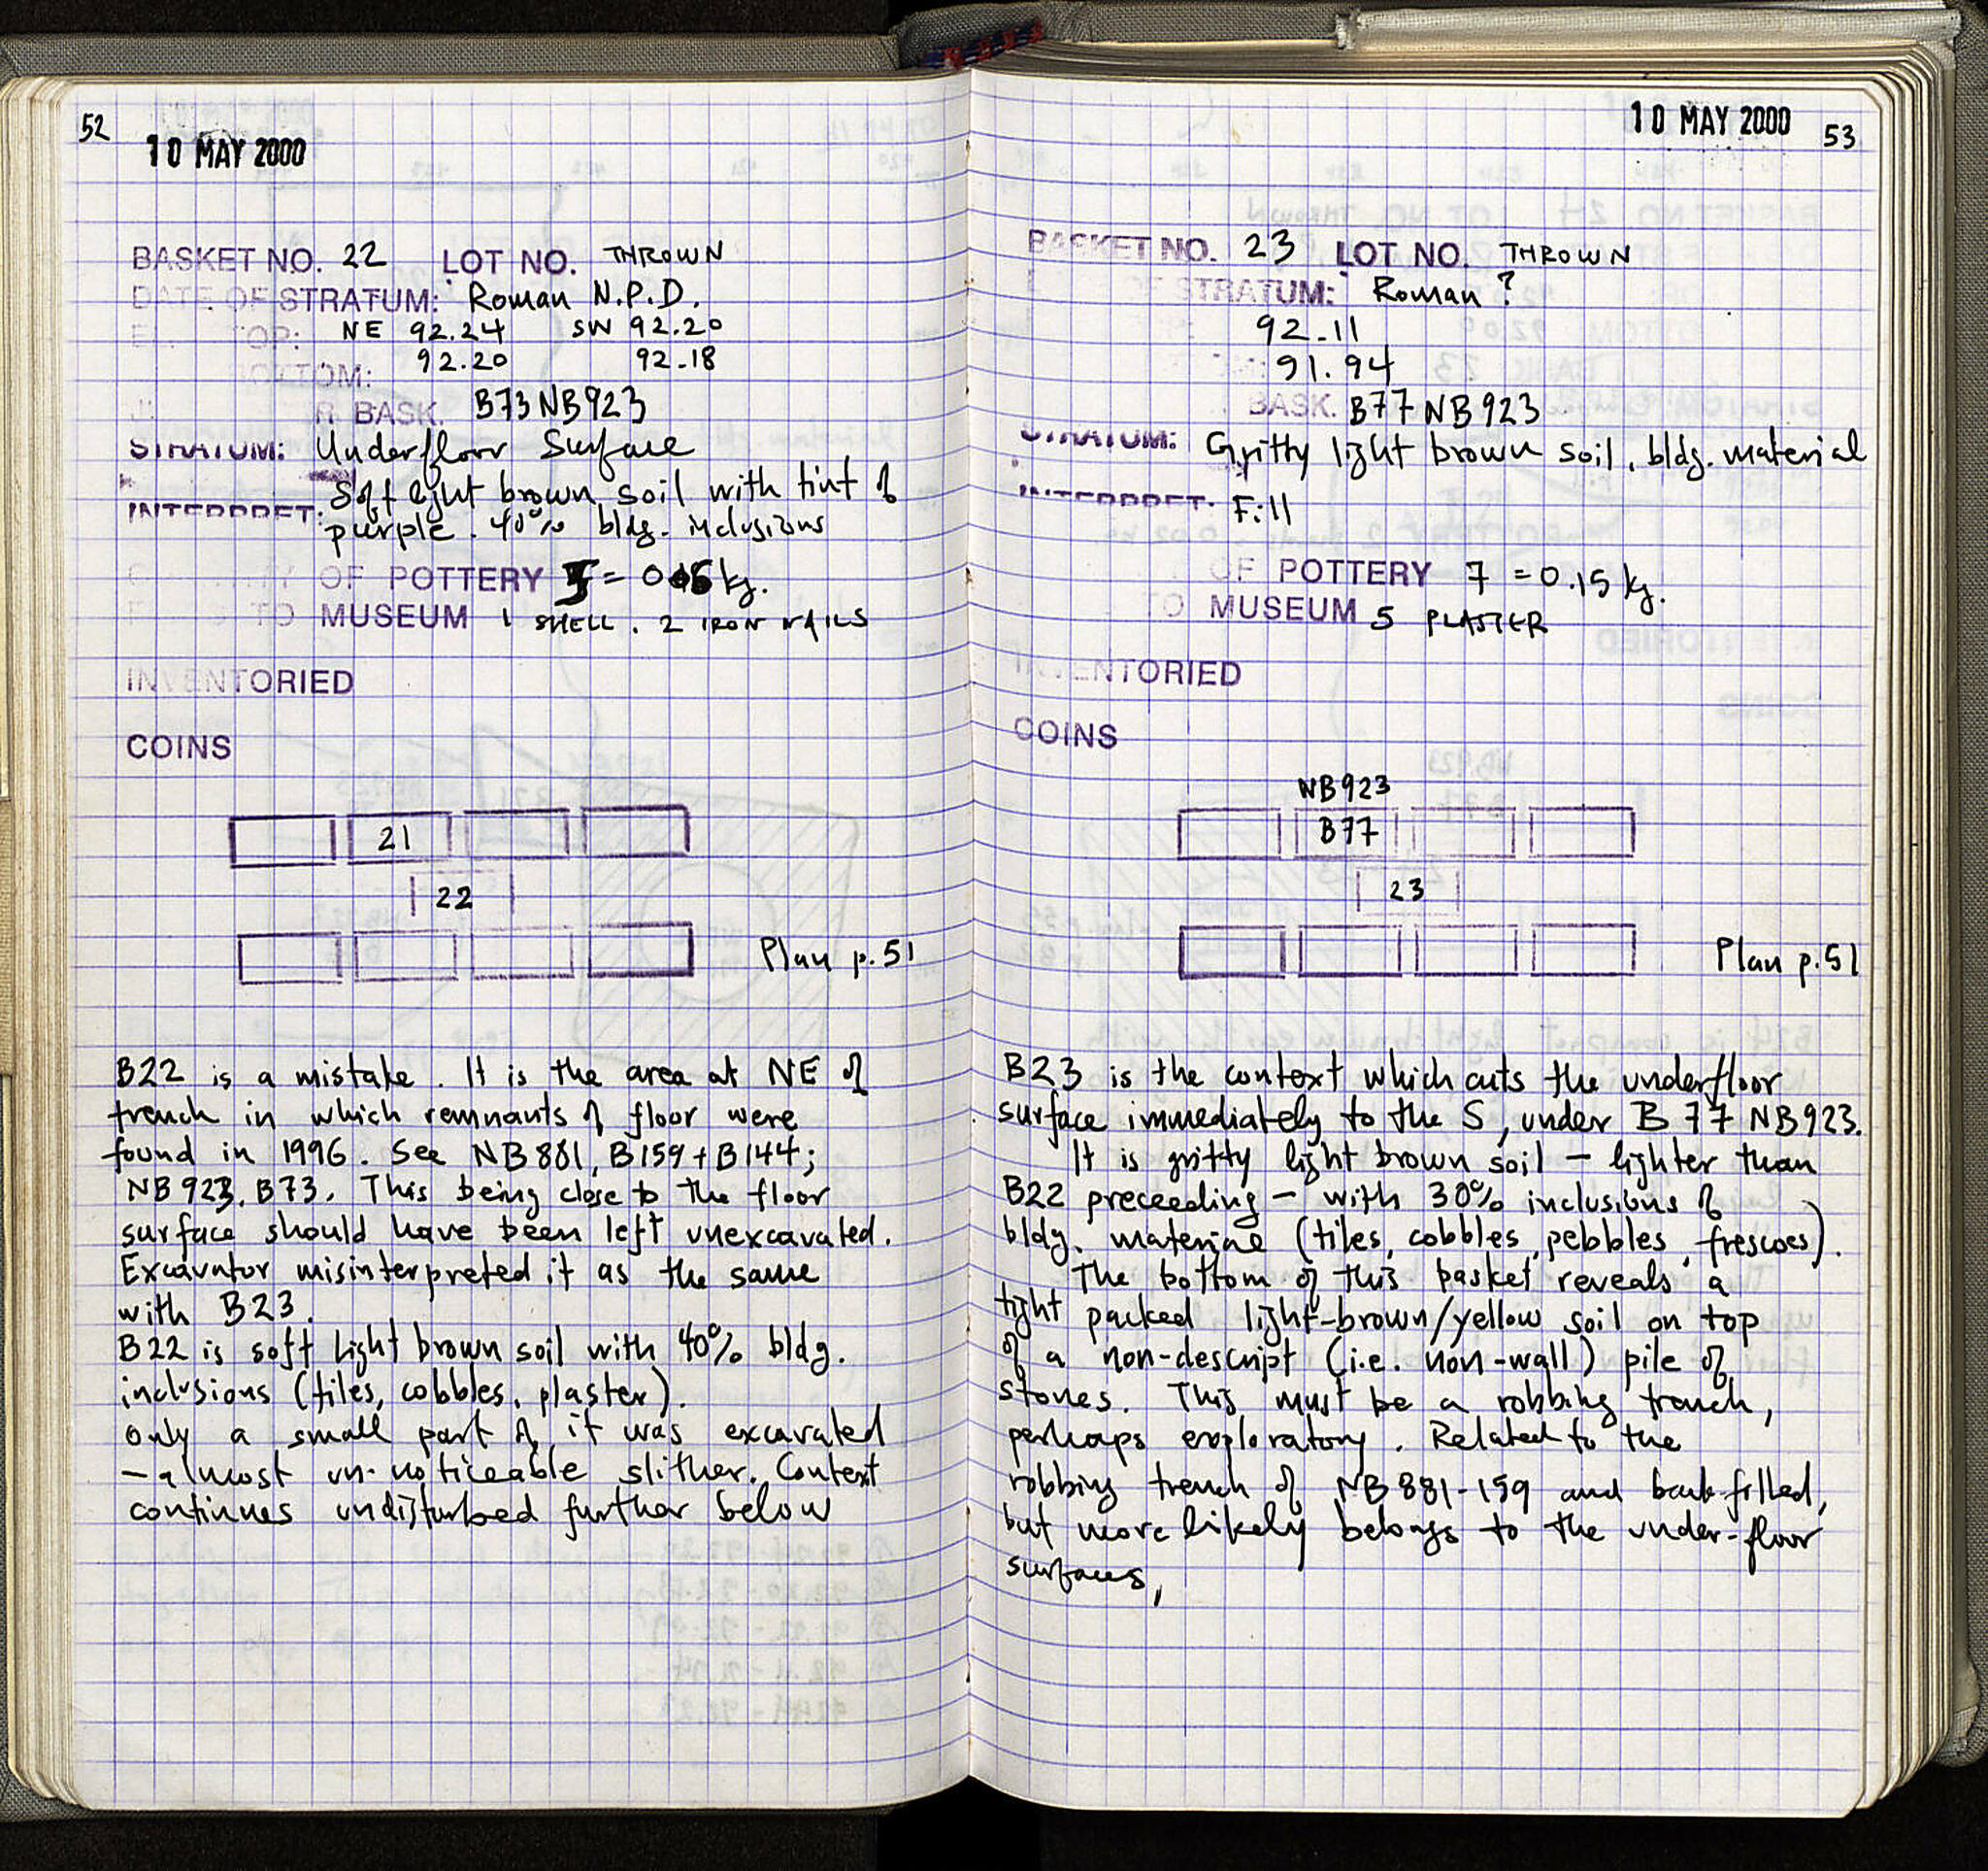 52
10 MAY 2000
BASKET NO. 22 LOT NO. THROWN
DATE OF STRATUM: Roman N.P.D.
TOP: NE 92.24 SW 92.20
BOTTOM: 92.20 92.18
BASK. B73 NB923
STRATUM: Underfloor Surface
Soft light brown soil with tint of
INTERPRET: purple. 40% bldg. inclusions
OF POTTERY = kg.
TO MUSEUM 1 SHELL. 2 IRON NAILS
INVENTORIED
COINS
21
22
Plan p.51
B22 is a mistake. It is the area at NE of
trench in which remnants of floor were
found in 1996. See NB881, B159+B144;
NB923. B73. This being close to the floor
surface should have been left unexcavated.
Excavator misinterpreted it as the same
with B23.
B22 is soft light brown soil with 40% bldg.
inclusions (tiles, cobbles, plaster).
only a small part of it was excavated
– almost un-noticeable slither. Context
continues undisturbed further below
10 MAY 2000 53
BASKET NO. 23 LOT NO. THROWN
STRATUM: Roman ?
92.11
91.94
BASK. B77 NB923
STRATUM: Gritty light brown soil, bldg. material
INTERPRET: Fill
OF POTTERY 7 = 0.15 kg.
TO MUSEUM 5 PLASTER
INVENTORIED
COINS
NB923
B77
23
Plan p.51
B23 is the context which cuts the underfloor
surface immediately to the S, under B77 NB923.
It is gritty light brown soil – lighter than
B22 preceeding – with 30% inclusions of
bldg. material (tiles, cobbles, pebbles, frescoes).
The bottom of this basket reveals a
tight packed light-brown/yellow soil on top
of a non-descript (i.e. non-wall) pile of
stones. This must be a robbing trench,
perhaps exploratory. Related to the
robbing trench of NB881-159 and back-filled,
but more likely belongs to the under-floor
surfaces,